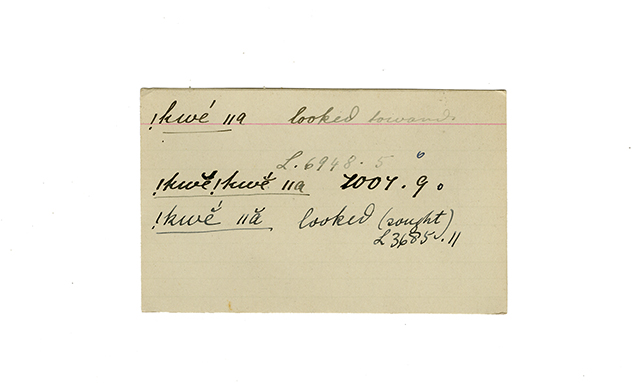 !kwé ǁa looked toward.
L. 6948. 5
!kwĕ!kwĕ́ ǁa 7007. 9.
!kwĕ́ ǁă looked (sought)
L 3685. 11